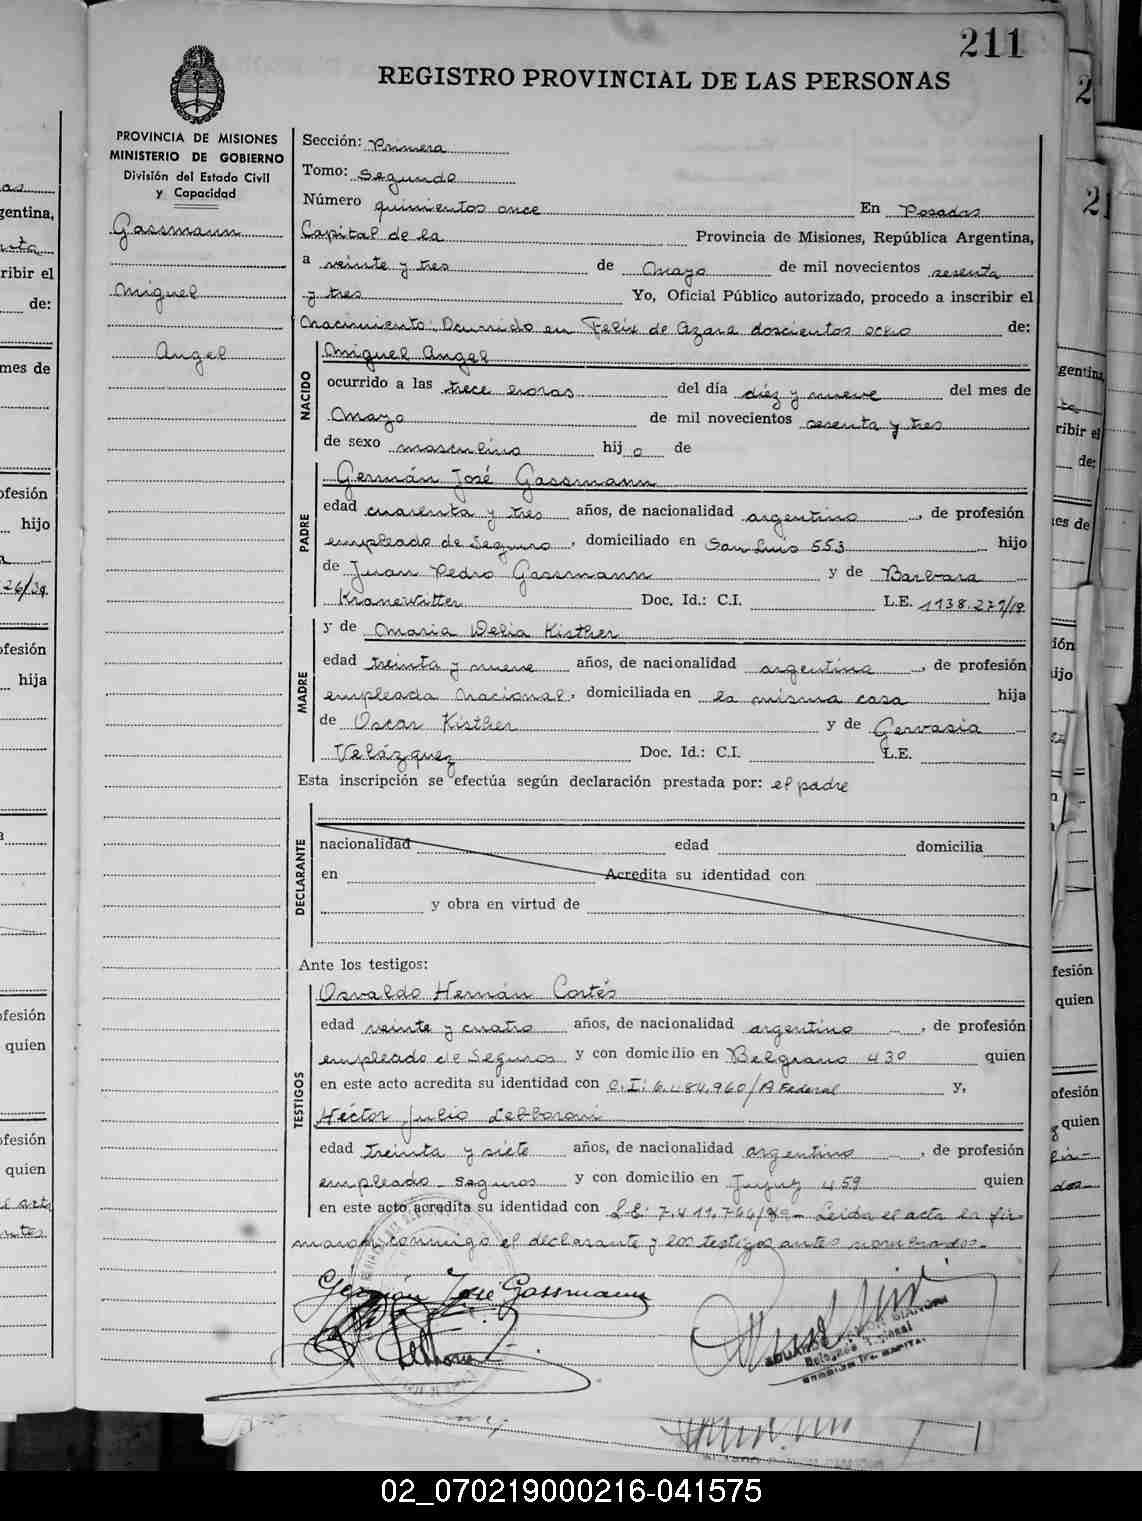 211
REGISTRO PROVINCIAL DE LAS PERSONAS
PROVINCIA DE MISIONES
MINISTERIO DE GOBIERNO
División del Estado Civil
y Capacidad
Gassmann
Miguel
Angel
Sección: Primera
Tomo: Segundo
Número quinientos once En Posadas
Capital de la Provincia de Misiones, República Argentina,
a veinte y tres de Mayo de mil novecientos sesenta
y tres Yo, Oficial Público autorizado, procedo a inscribir el
Nacimiento: Ocurrido en Felix de Azara doscientos ocho de:
NACIDO
Miguel Angel
ocurrido a las trece horas del día diéz y nueve del mes de
Mayo de mil novecientos sesenta y tres
de sexo masculino hijo de
PADRE
Germán José Gassmann
edad cuarenta y tres años, de nacionalidad argentino, de profesión
empleado de Seguro, domiciliado en San Luis 553 hijo
de Juan Pedro Gassmann y de Barbara
Kranewitter Doc. Id.: C.I. L.E. 1138.271/19
MADRE
y de Maria Delia Kisther
edad treinta y nueve años, de nacionalidad argentina, de profesión
empleada Nacional, domiciliada en la misma casa hija
de Oscar Kisther y de Gervasia
Velázquez Doc. Id.: C.I. L.E.
Esta inscripción se efectúa según declaración prestada por: el padre
DECLARANTE
nacionalidad edad domicilia
en Acredita su identidad con
y obra en virtud de
Ante los testigos:
TESTIGOS
Osvaldo Hernán Cortés
edad veinte y cuatro años, de nacionalidad argentino, de profesión
empleado de Seguros y con domicilio en Belgrano 430 quien
en este acto acredita su identidad con C.I: 960/A Federal y,
Héctor Julio
edad treinta y siete años, de nacionalidad argentino, de profesión
empleado - Seguros y con domicilio en Jujuy 459 quien
en este acto acredita su identidad con L.E: Leída el acta la fir
maron conmigo el declarante y los testigos antes nombrados.-
Germán José Gassmann
02_070219000216-041575